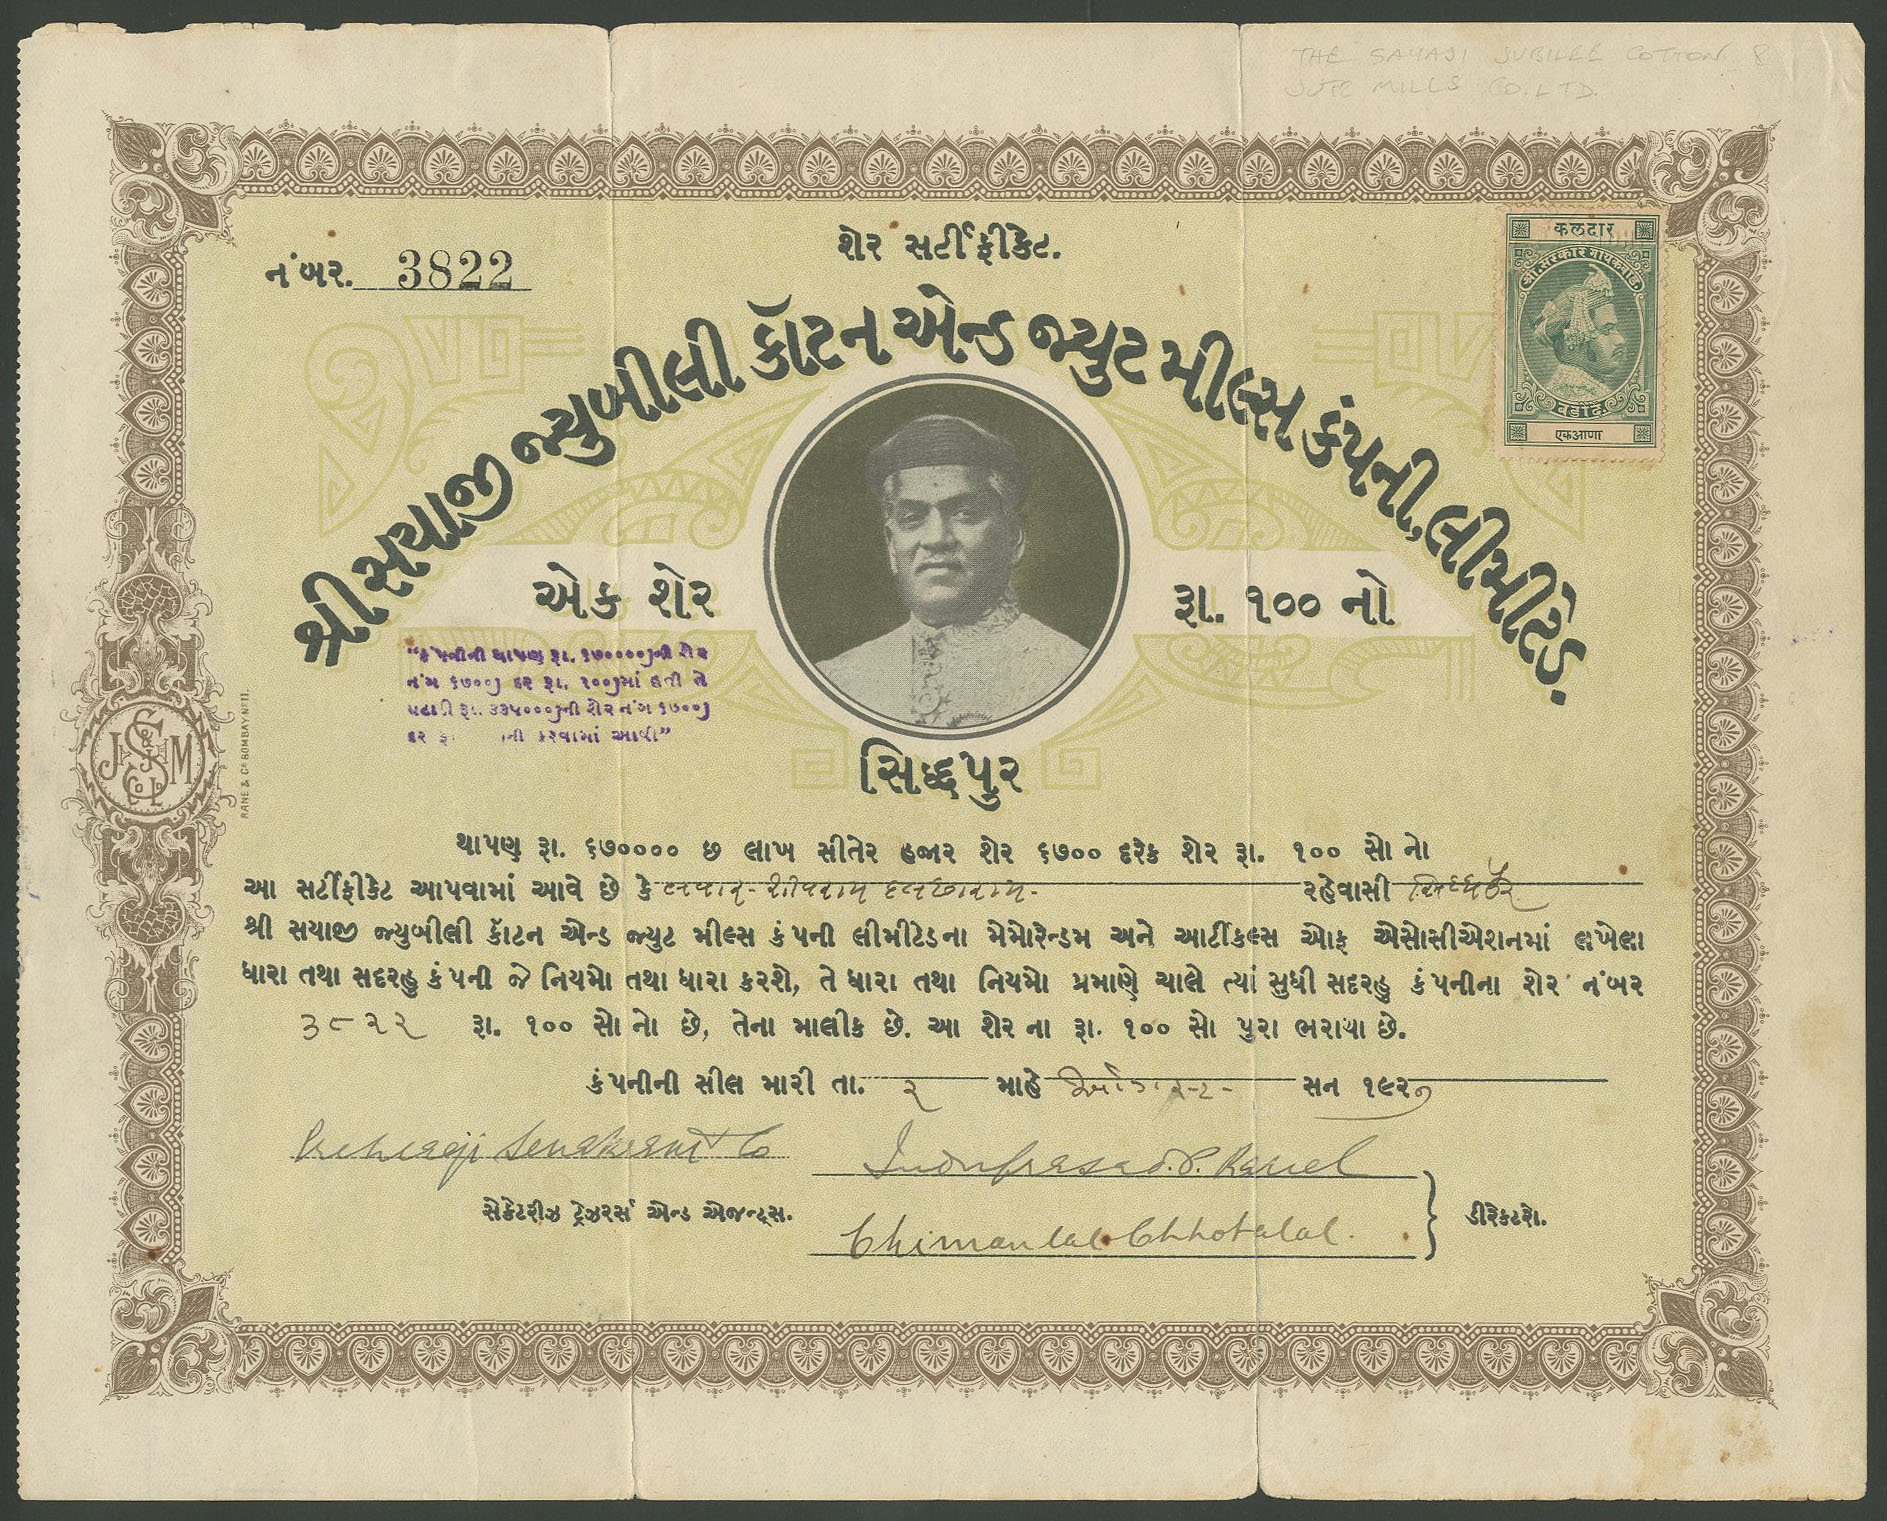 THE SAYAJI JUBILEE COTTON &
JUTE MILLS CO. LTD.
શેર સર્ટીફીકેટ.
નંબર. 3822
कलदार
श्री. सरकार गायकवाड.
बडोदें.
एक आणा
શ્રી સયાજી જ્યુબીલી કૉટન એન્ડ જ્યુટ મીલ્સ કંપની, લીમીટેડ.
એક શેર
રૂા. ૧૦૦ નો
"કંપનીની થાપણ રૂા. ૬૭૦૦૦૦)ની શેર
નંગ ૬૭૦૦) દર રૂા. ૧૦૦)માં હતી તે
ઘટાડી રૂા. ૩૩૫૦૦૦)ની શેર નંગ ૬૭૦૦)
દર રૂા ની કરવામાં આવી"
સિદ્ધપુર
J S & K M Co Ld
RANE & Co BOMBAY Nº 11.
થાપણ રૂા. ૬૭૦૦૦૦ છ લાખ સીતેર હજાર શેર ૬૭૦૦ દરેક શેર રૂા. ૧૦૦ સો નો
આ સર્ટીફીકેટ આપવામાં આવે છે કે રહેવાસી સિધ્ધપુર
શ્રી સયાજી જ્યુબીલી કૉટન એન્ડ જ્યુટ મીલ્સ કંપની લીમીટેડના મેમોરેન્ડમ અને આર્ટીકલ્સ ઓફ એસોસીએશનમાં લખેલા
ધારા તથા સદરહુ કંપની જે નિયમો તથા ધારા કરશે, તે ધારા તથા નિયમો પ્રમાણે ચાલે ત્યાં સુધી સદરહુ કંપનીના શેર નંબર
૩૮૨૨ રૂા. ૧૦૦ સો નો છે, તેના માલીક છે. આ શેર ના રૂા. ૧૦૦ સો પુરા ભરાયા છે.
કંપનીની સીલ મારી તા. ૨ માહે ઓગસ્ટ સન ૧૯૨૭
Indufrasad. P.
સેક્રેટરીઝ ટ્રેઝરર્સ એન્ડ એજન્ટ્સ.
Chimanlal Chhotalal.
ડીરેક્ટરો.